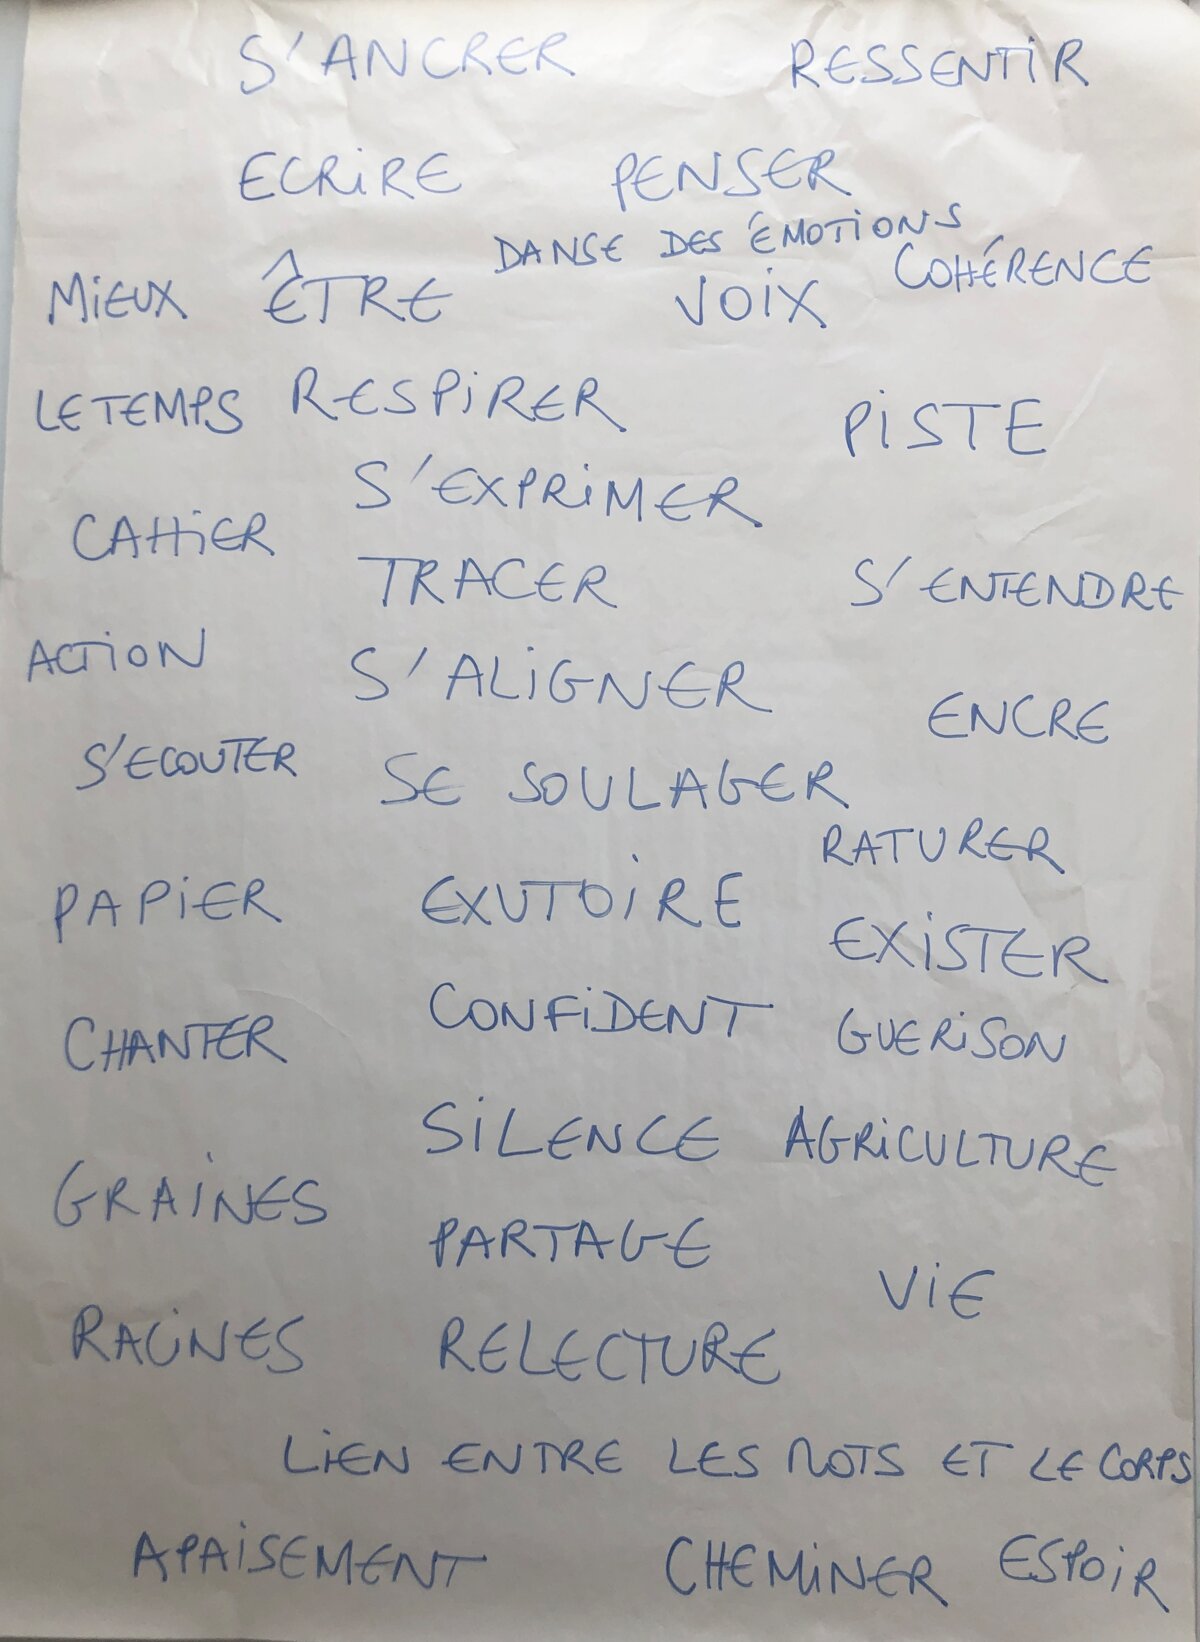 S'ANCRER RESSENTIR
ECRIRE PENSER
DANSE DES ÉMOTIONS
MIEUX ÊTRE VOIX COHÉRENCE
LE TEMPS RESPIRER PISTE
S'EXPRIMER
CAHIER
TRACER S'ENTENDRE
ACTION S'ALIGNER
ENCRE
S'ECOUTER SE SOULAGER
RATURER
PAPIER EXUTOIRE
EXISTER
CONFIDENT GUERISON
CHANTER
SILENCE AGRICULTURE
GRAINES
PARTAGE
VIE
RACINES RELECTURE
LIEN ENTRE LES MOTS ET LE CORPS
APAISEMENT CHEMINER ESPOIR